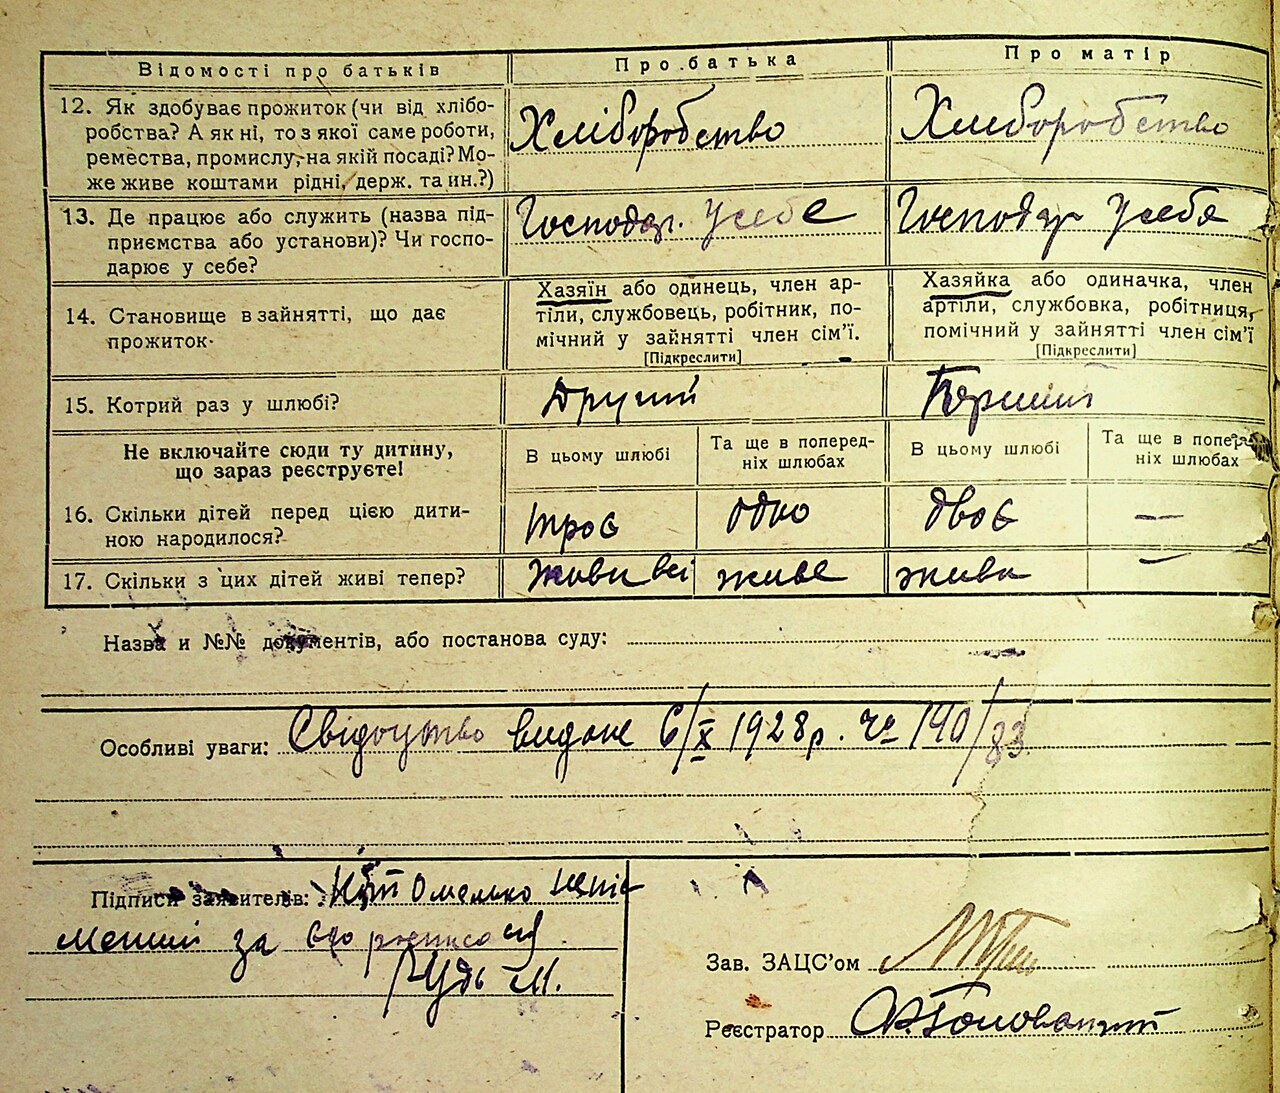 Відомості про батьків
Про батька
Про матір
12. Як здобуває прожиток (чи від хлібо-
робства? А як ні, то з якої саме роботи,
ремества, промислу, на якій посаді? Мо-
же живе коштами рідні, держ. та ин.?)
Хліборобство
Хліборобство
13. Де працює або служить (назва під-
приємства або установи)? Чи госпо-
дарює у себе?
Господар. у себе
Господар у себе
14. Становище в зайнятті, що дає
прожиток.
Хазяїн або одинець, член ар-
тіли, службовець, робітник, по-
мічний у зайнятті член сім’ї.
[Підкреслити]
Хазяйка або одиначка, член
артіли, службовка, робітниця,
помічний у зайнятті член сім’ї
[Підкреслити]
15. Котрий раз у шлюбі?
Другий
Перший
Не включайте сюди ту дитину,
що зараз реєструєте!
В цьому шлюбі
Та ще в поперед-
ніх шлюбах
В цьому шлюбі
Та ще в попере
ніх шлюбах
16. Скільки дітей перед цією дити-
ною народилося?
троє
одно
двоє
—
17. Скільки з цих дітей живі тепер?
живи всі
живе
живи
—
Назва и №№ документів, або постанова суду:
Особливі уваги: Свідоцтво видане 6/X 1928р. № 190/83
Підписи заявителів: Омелько непис
менний за его росписался
Рудь М.
Зав. ЗАЦС’ом
Реєстратор Головацкий